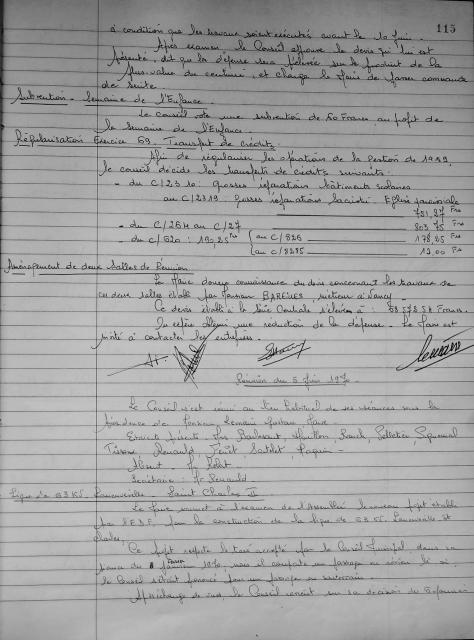 115
à condition que les travaux soient exécutés avant le 10 Juin.
Après examen, le Conseil approuve le devis qui lui est
présenté, dit que la dépense sera prélevée sur le produit de la
et charge le Maire de passer commande
de suite.
Subvention - Semaine de l'Enfance.
Le Conseil vote une subvention de 50 Francs au profit de
la Semaine de l'Enfance.
Régularisation Exercice 69. Transfert de crédits.
Afin de régulariser les opérations de la Gestion de 1969,
le conseil décide les transferts de crédits suivants:
- du C/2310: Grosses réparations bâtiments scolaires
au C/2319: Grosses réparations Eglise paroissiale
751,27 Frs
- du C/264 au C/27 803,75 Frs
- du C/620: 190,25 Frs au C/826 178,25 Frs
au C/8285 12,00 Frs
Aménagement de deux Salles de Réunion.
Le Maire donne connaissance du devis concernant les travaux de
ces deux salles établi par Monsieur métreur à Nancy.
Ce devis établi à la Série Centrale s'élève à: Francs.
obtenir une réduction de la dépense. Le Maire est
invité à contacter les entreprises.
Réunion du 5 Juin 1970.
Le Conseil s'est réuni au lieu habituel de ses séances sous la
Présidence de Monsieur Maire
Etaient présents: Mrs Pelletier,
Renauld,
Absent: Mr
Secrétaire: Mr Renauld
Ligne de 63 KV. Laneuveville - Saint Charles II
Le Maire soumet à l'examen de l'Assemblée le nouveau projet établi
par l'E.D.F. pour la construction de la ligne de 63 KV. Laneuveville St
Charles.
Ce projet respecte le tracé accepté par le Conseil Municipal dans sa
séance du 1970, mais il comporte un passage en aérien là où
le Conseil s'était prononcé pour un passage en souterrain.
Après échange de vues, le Conseil revient sur sa décision du